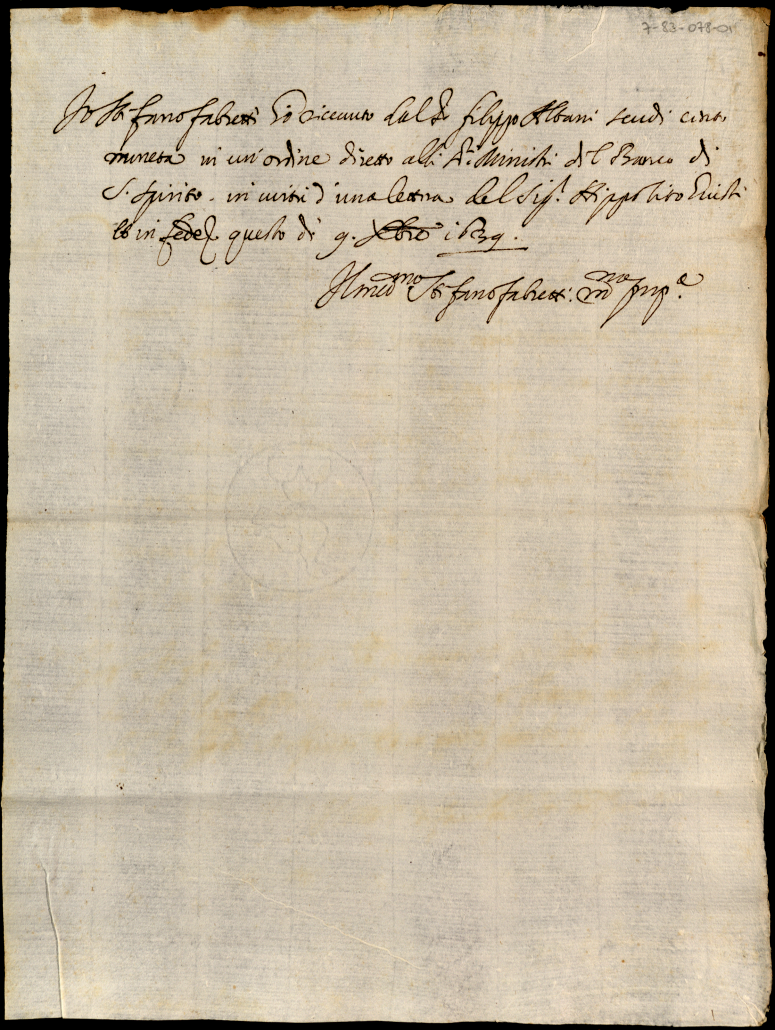 7-83-078-01
Io Stefano fabretti hò riceuuto dal S.r filippo Albani scudi cento
moneta in un'ordine diretto alli SS.ri Ministri del Banco di
S. Spirito. in uirtù d'una lettera del Sig.r Hippolito
et in fede questo dì 9. Xbre 1639.
Il med.mo Stefano fabretti. m.no prop.a